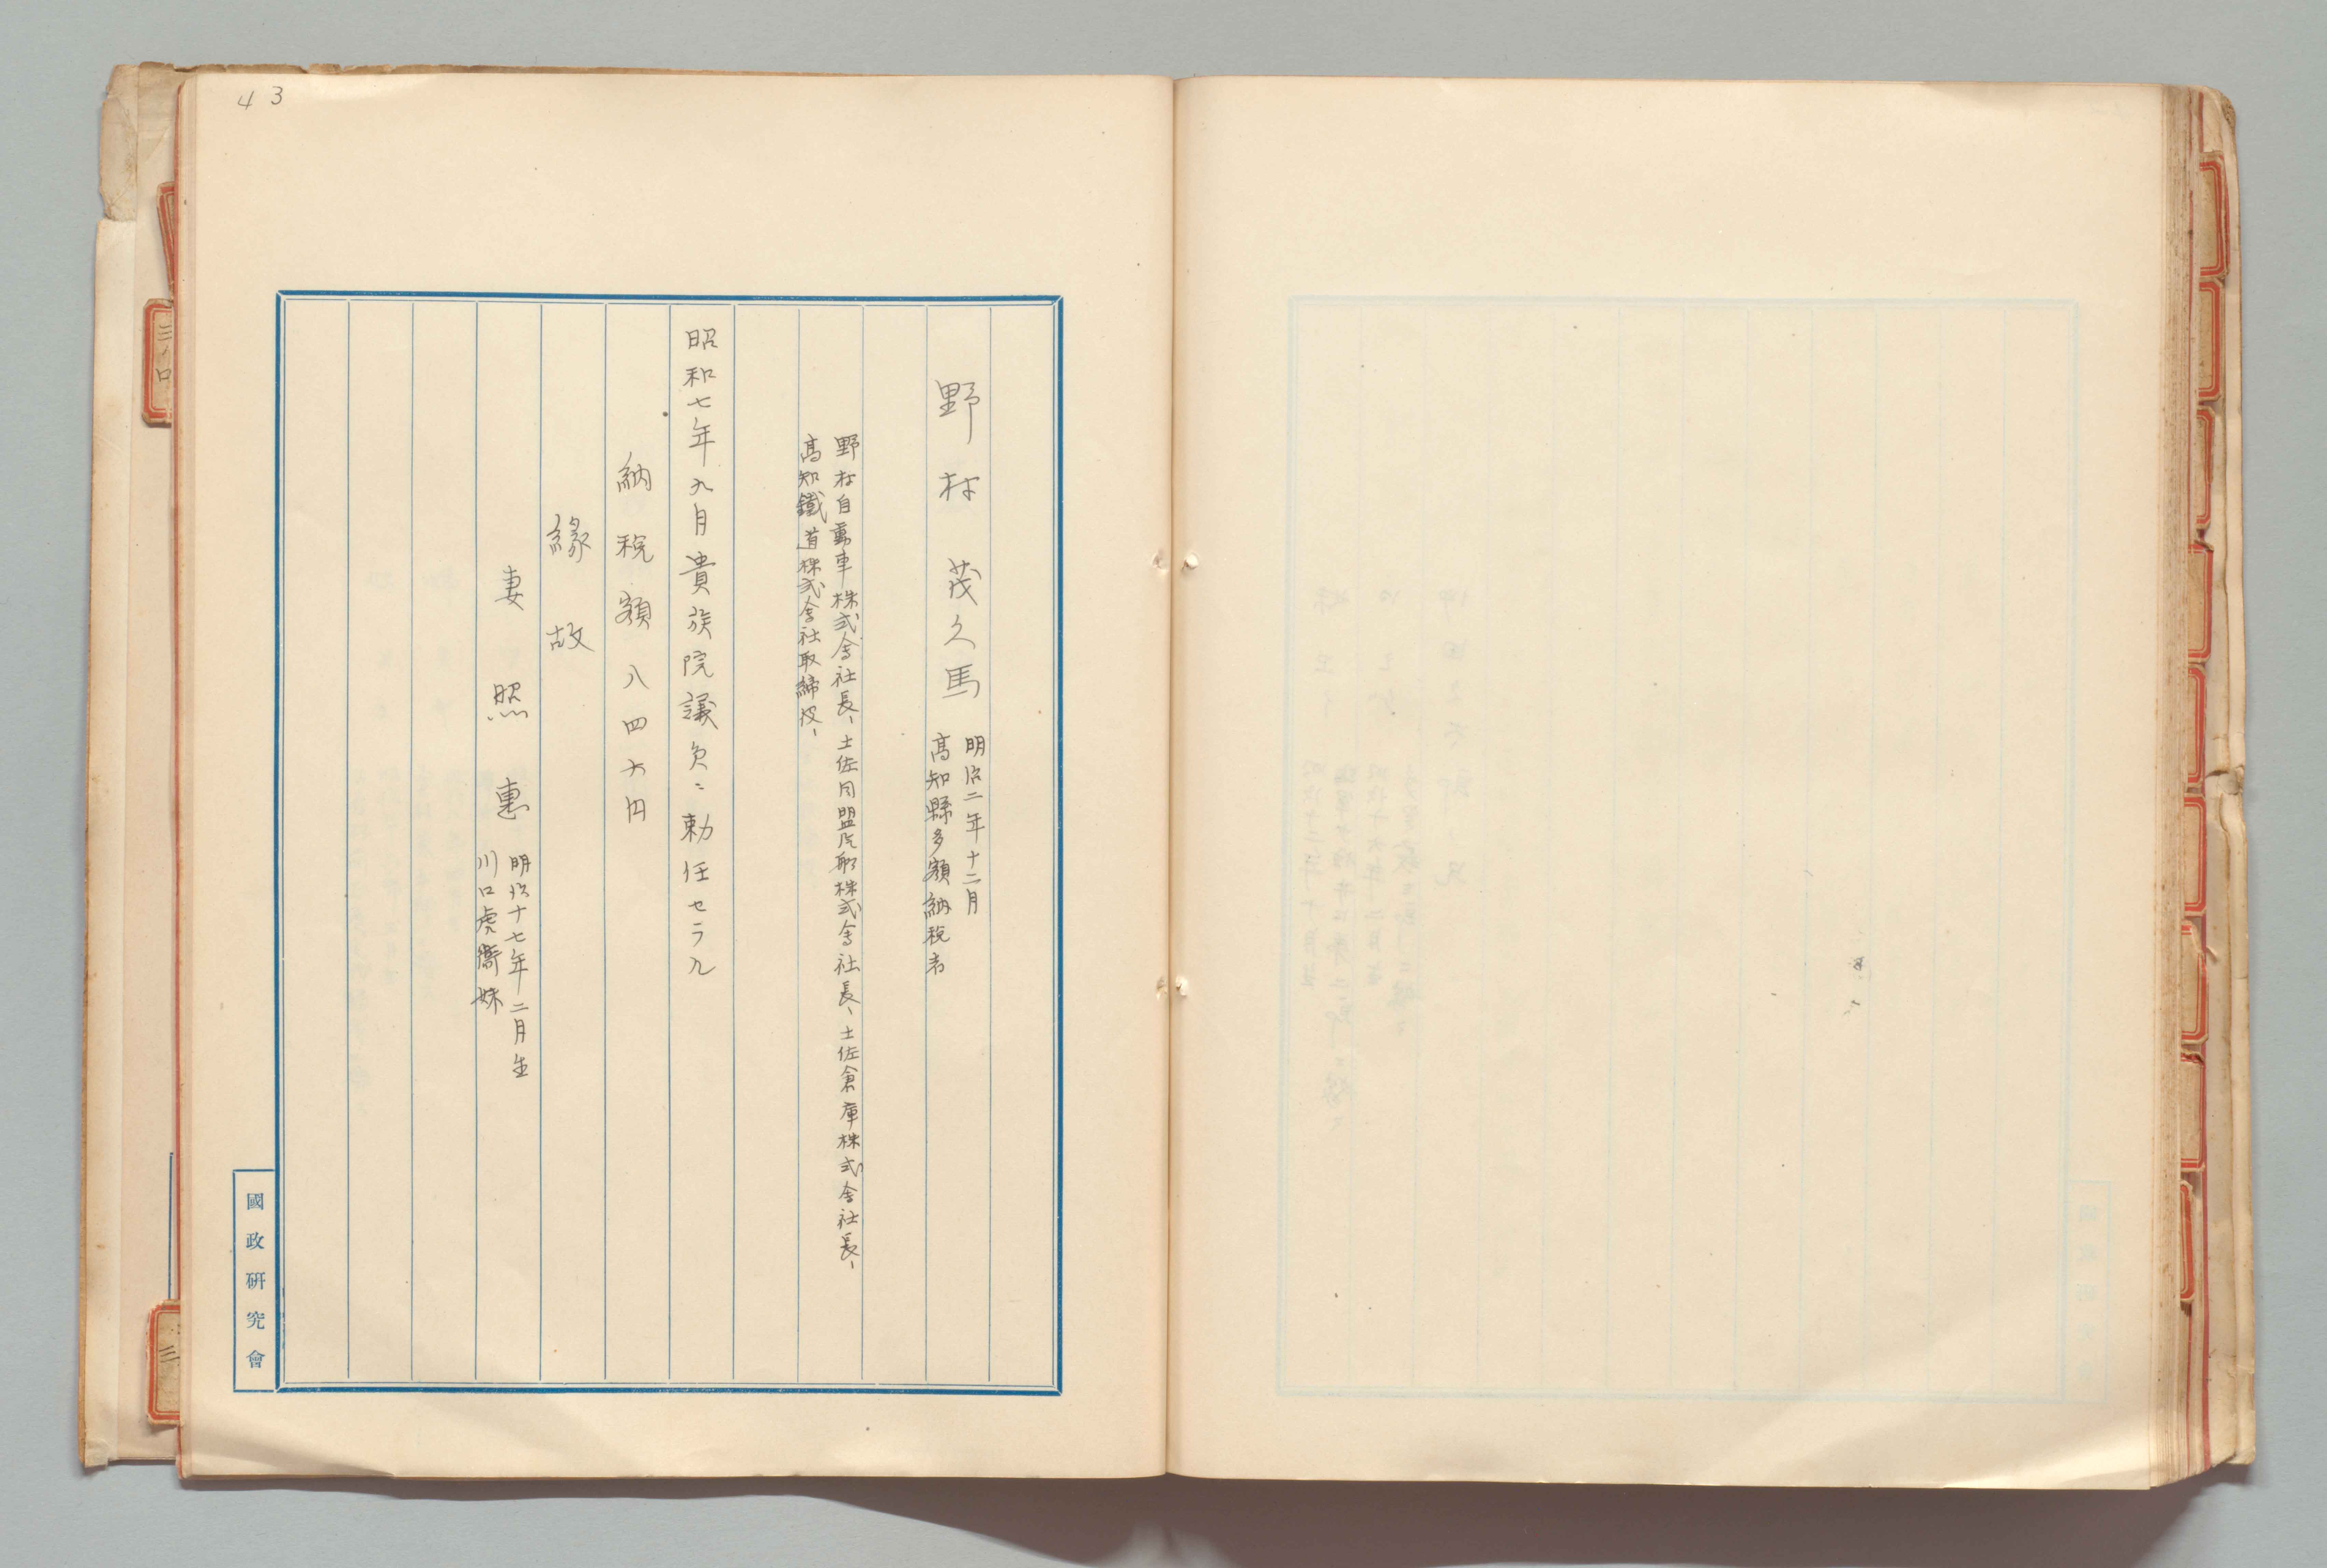 43
野村 茂久馬
明治二年十二月
高知縣多額納税者
野村自動車株式会社長、土佐同盟汽船株式会社長、土佐倉庫株式会社長、
高知鐵道株式会社取締役、
昭和七年九月貴族院議員ニ勅任セラル
納税額八四六円
縁故
妻 照惠
明治十七年二月生
川口虎衛妹
國政研究會